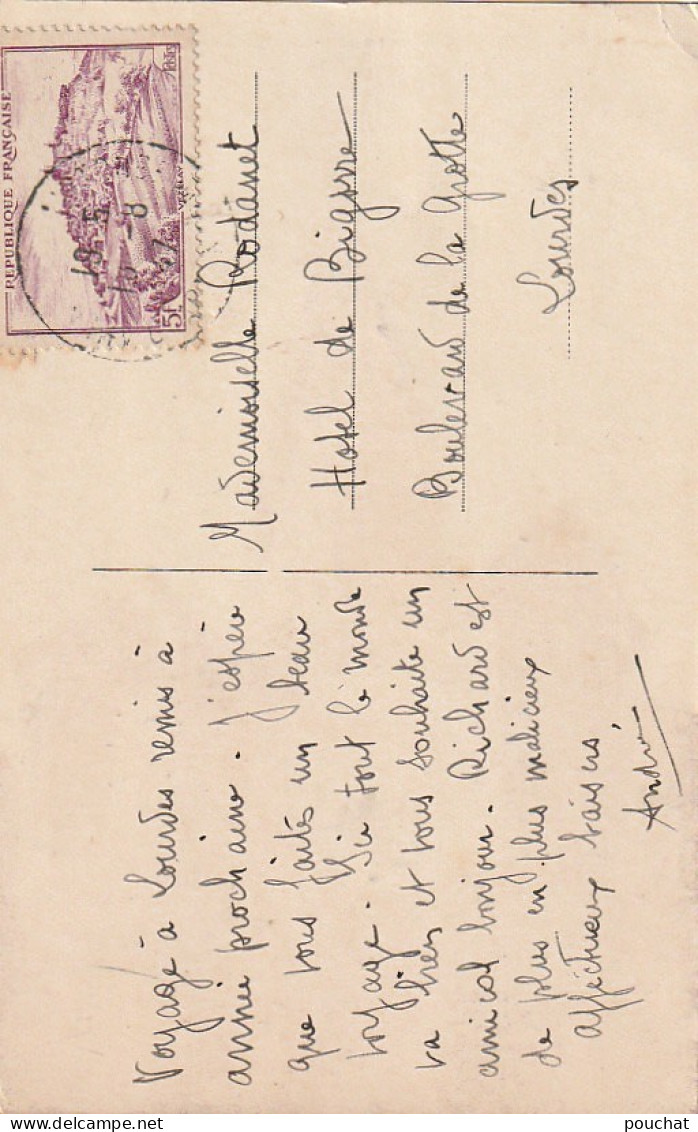 Voyage à Lourdes remis à
année prochaine. J'espère
que vous faites un beau
voyage. Ici tout le monde
va bien et vous souhaite un
amical bonjour. Richard est
de plus en plus malicieux
affectueux baisers,
André
REPUBLIQUE FRANÇAISE
VEZELAY
5F
POSTES
19-5
-8
Mademoiselle Rodanet
Hotel de Bigorre
Boulevard de la Grotte
Lourdes
pouchat